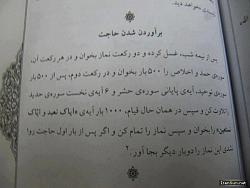 خواهد دید.
برآوردن شدن حاجت
پس از نیمه شب، غسل کرده و دو رکعت نماز بخوان و در هر رکعت آن،
سوره‌ی حمد و اخلاص را ۵۰۰ بار بخوان و در رکعت دوم، پس از ۵۰۰ بار
سوره‌ی توحید، آیه‌ی پایانی سوره‌ی حشر و ۶ آیه‌ی نخست سوره‌ی حدید
را تلاوت کن و سپس در همان حال قیام، ۱۰۰۰ بار آیه‌ی «ایاک نعبد و ایاک
نستعین» را بخوان و سپس نماز را تمام کن و اگر پس از بار اول حاجت روا
نشدی این نماز را دوبار دیگر بجا آور.۲